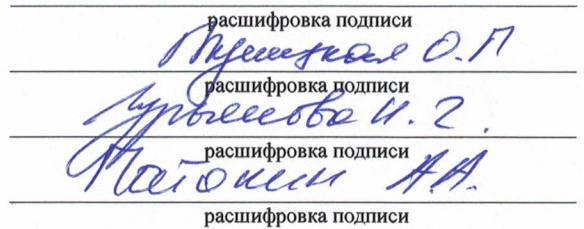 расшифровка подписи
О.П
расшифровка подписи
Гурьянова Н. Г.
расшифровка подписи
Патокин А.А.
расшифровка подписи